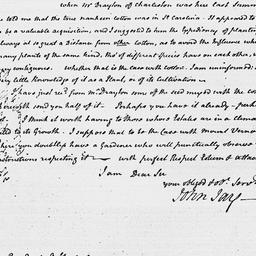 when Mr Drayton of Charleston was here last Summer
he told me that the true nankeen cotton was in So Carolina. It appeared to
be a valuable acquisition, and I suggested to him the expediency of planting
always at so great a distance from other cotton, as to avoid the Influence which
many plants of the same kind, tho' of different species have on each other, when
contiguous. whether that is the case with cotton, I am uninformed:
very little knowledge of it as a Plant, or of its cultivation —
I have just recd. from Mr Drayton some of the seed
herewith send you half of it. Perhaps you have it already — perhaps
I think it worth having to those whose Estates are in a climate
its Growth. I suppose that to be the case with Mount Vernon
where you doubtless have a Gardener who will punctually observe
Instructions respecting it — with perfect Respect Esteem & attachment
I am Dear Sir
your obliged & obt. Servt.
John Jay